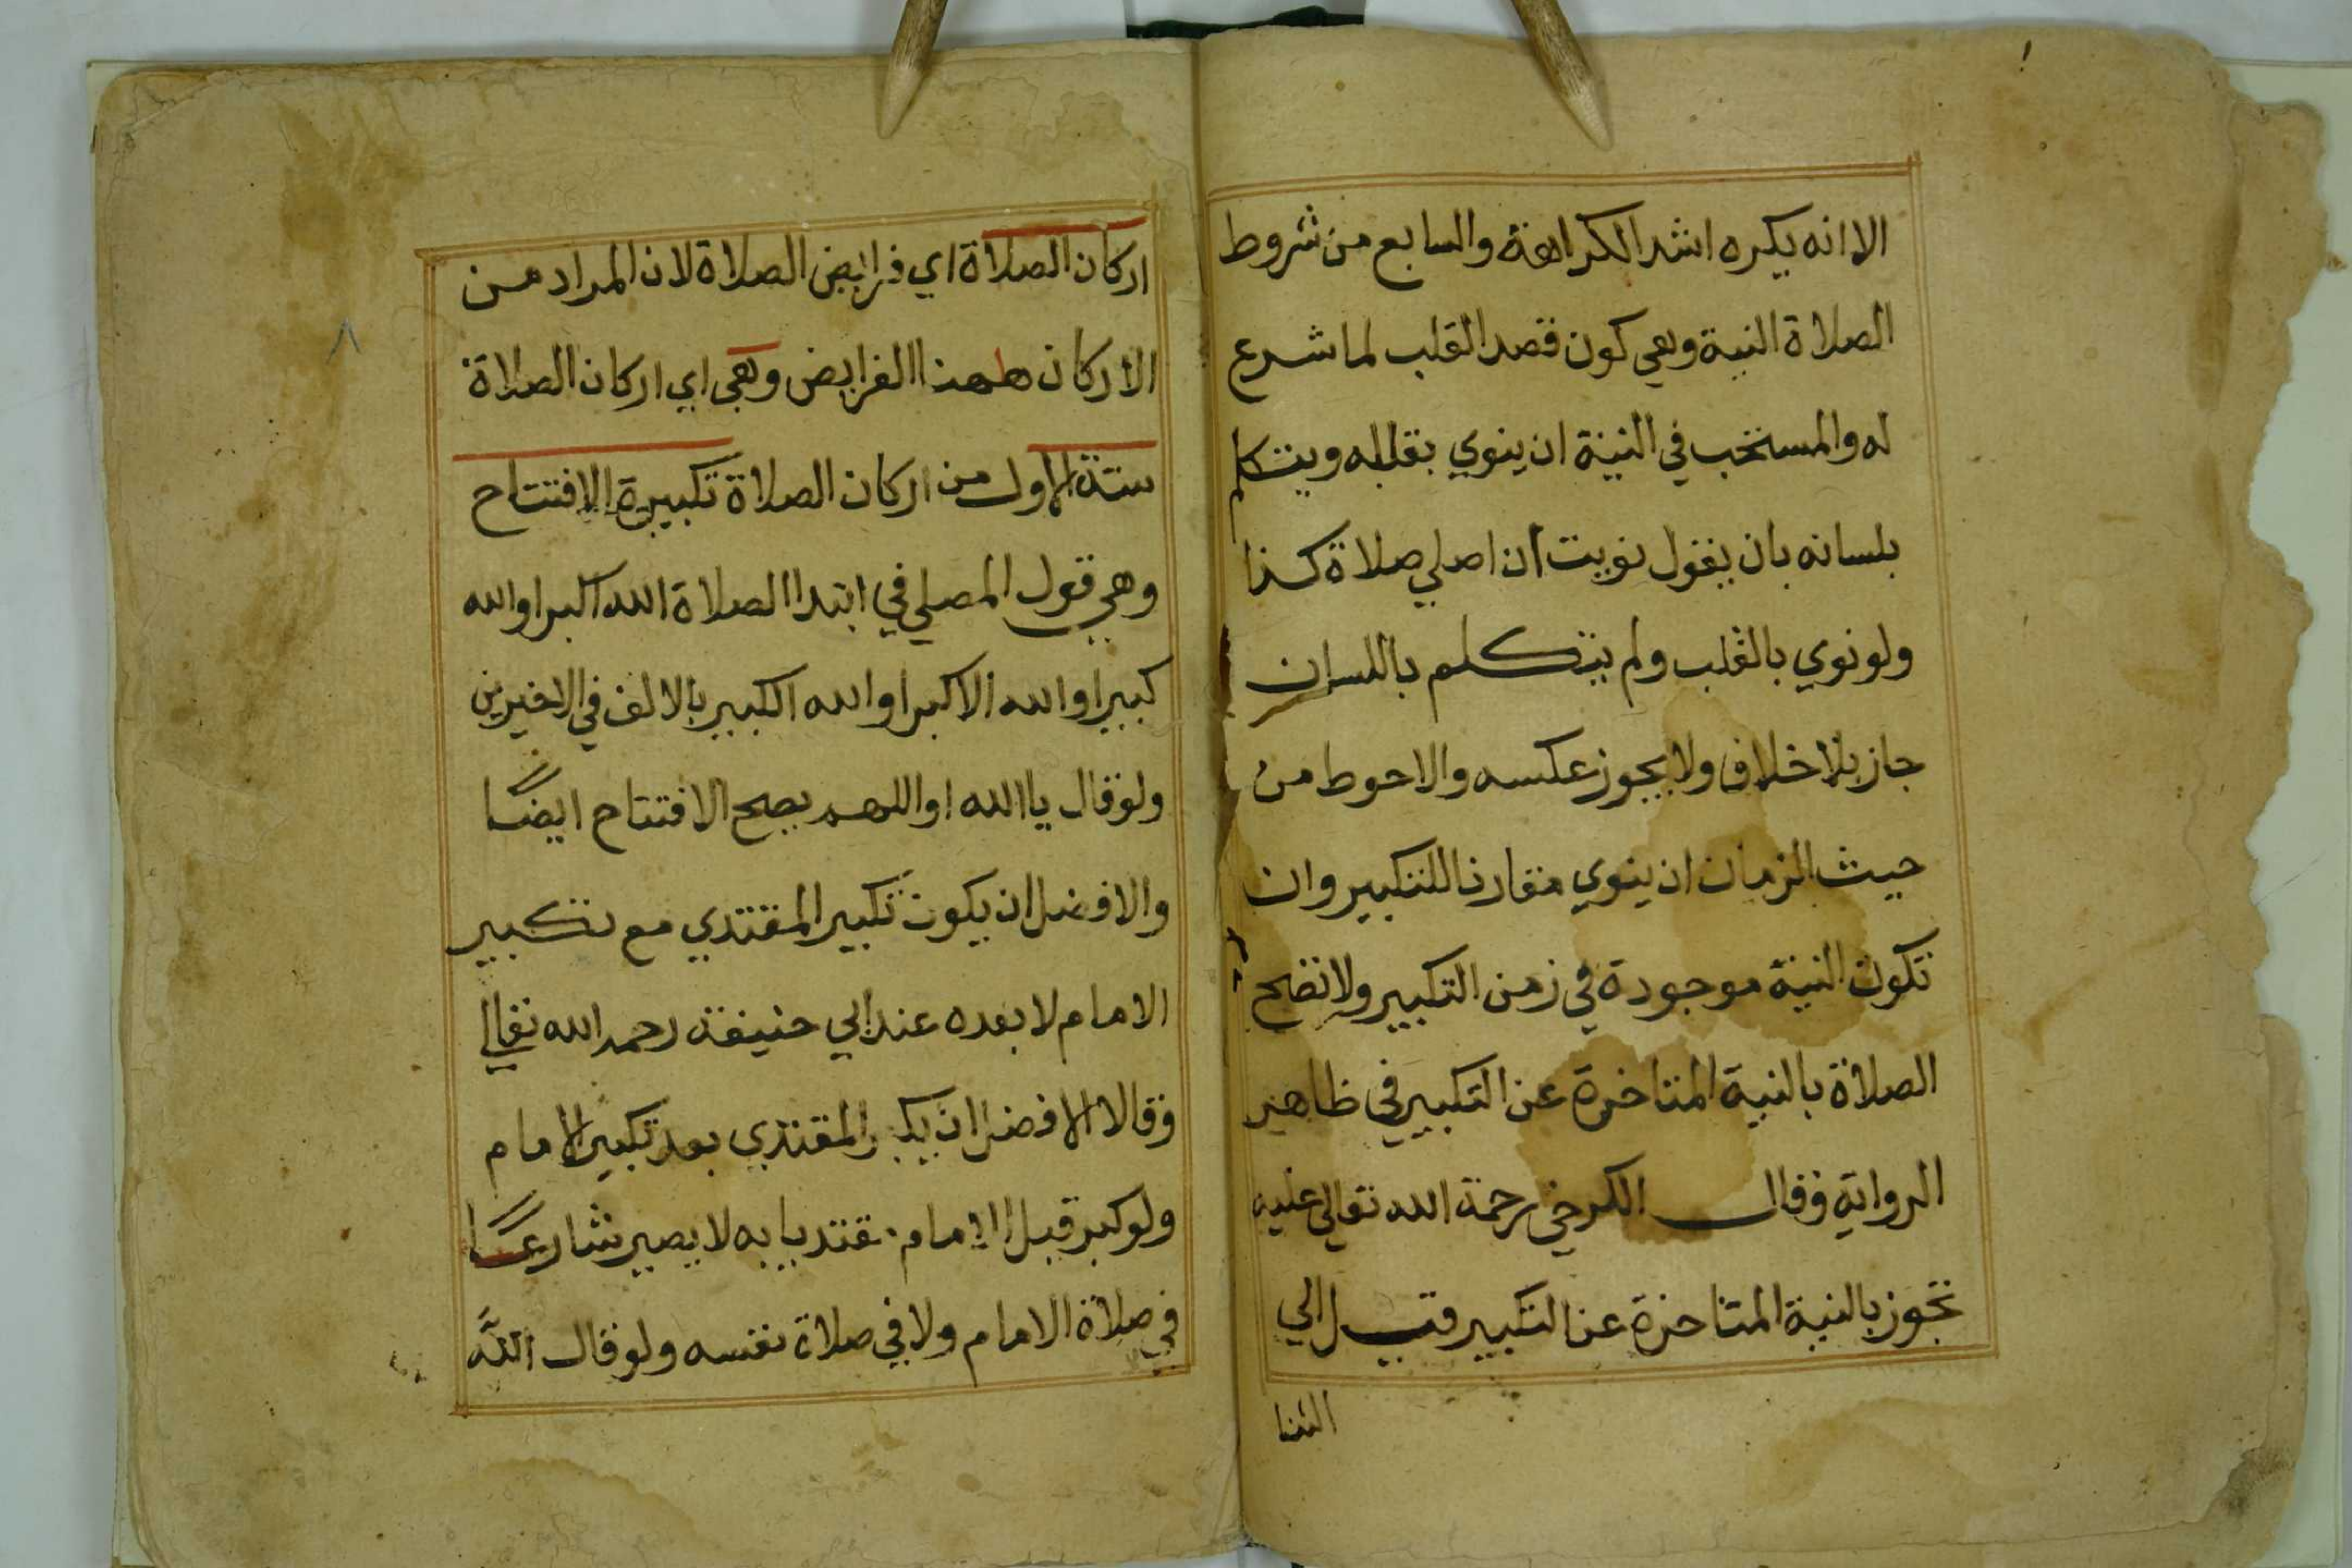 الا انه يكره اشد الكراهة والسابع من شروط
الصلاة النية وهي كون قصد القلب لما شرع
له والمستحب في النية ان ينوي بقلبه ويتكلم
بلسانه بان يقول نويت ان اصلي صلاة كذا
ولو نوي بالقلب ولم يتكلم باللسان
جاز بلا خلاف ولا يجوز عكسه والاحوط من
حيث الزمان ان ينوي مقارنا للتكبير وان
تكون النية موجودة في زمن التكبير ولا تصح
الصلاة بالنية المتاخرة عن التكبير في ظاهر
الرواية وقال الكرخي رحمة الله تعالي عليه
تجوز بالنية المتاخرة عن التكبير قيل الي
الثنا
اركان الصلاة اي فرايض الصلاة لان المراد من
الاركان ههنا الفرايض وهي اي اركان الصلاة
ستة الاول من اركان الصلاة تكبيرة الافتتاح
وهي قول المصلي في ابتدا الصلاة الله اكبر او الله
كبيرا والله الاكبر او الله الكبير بالالف في الاخيرين
ولو قال يا الله او اللهم يصح الافتتاح ايضا
والافضل ان يكون تكبير المقتدي مع تكبير
الامام لا بعده عند ابي حنيفة رحمه الله تعالي
وقالا الافضل ان يكبر المقتدي بعد تكبير الامام
ولو كبر قبل الامام مقتديا به لا يصير شارعا
في صلاة الامام ولا في صلاة نفسه ولو قال الله